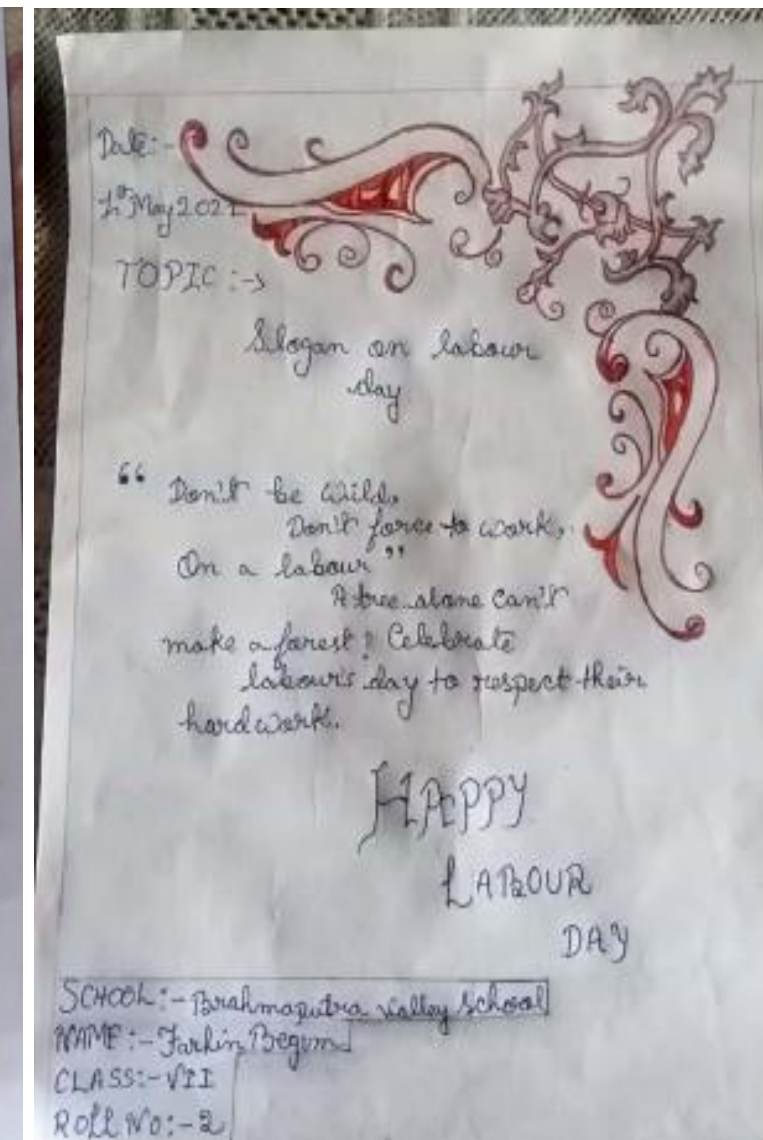 Date:-
1st May 2021
TOPIC :->
Slogan on labour
day
“ Don't be wild,
Don't force to work,
On a labour ”
A tree alone can't
make a forest! Celebrate
labour's day to respect their
hardwork.
HAPPY
LABOUR
DAY
SCHOOL:- Brahmaputra Valley School
NAME:- Farhin Begum
CLASS:- VII
ROLL NO:- 2